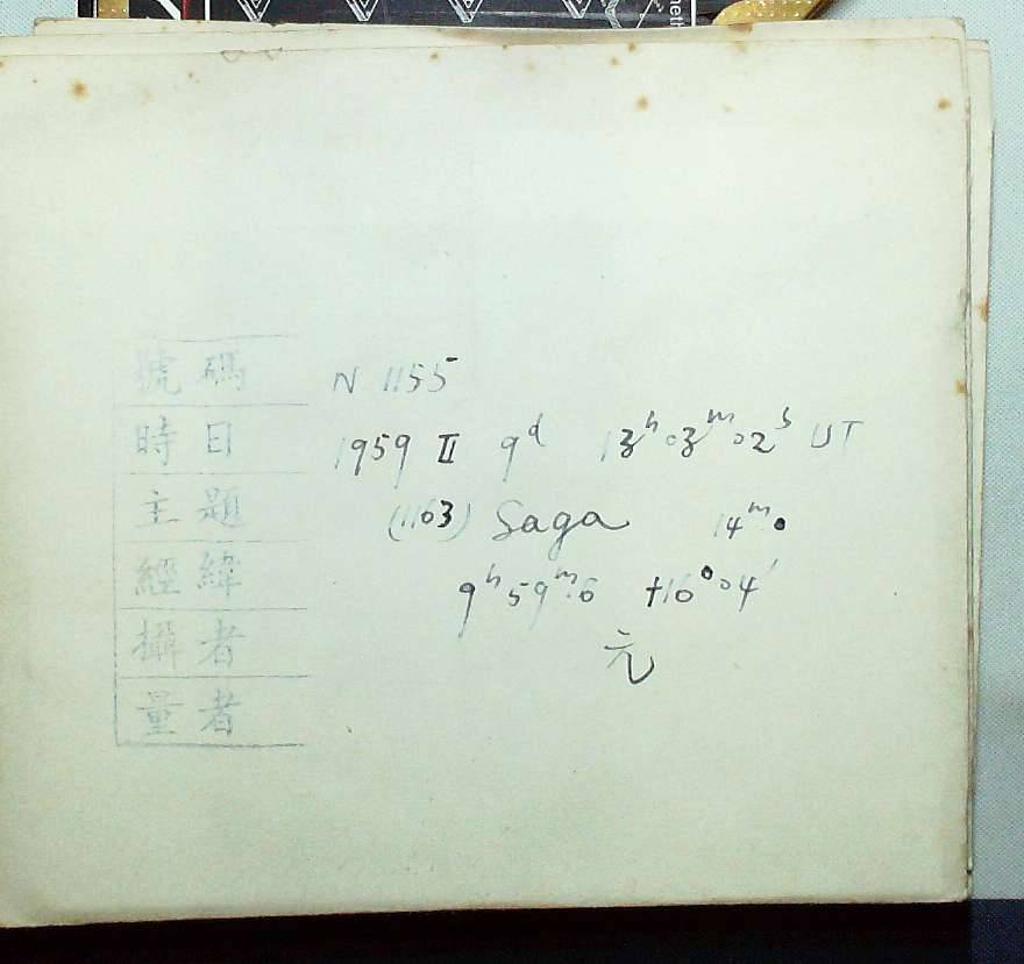 號碼 N 1155
時日 1959 II 9ᵈ 13ʰ03ᵐ02ˢ UT
主題 (1103) Saga 14ᵐ.
經緯 9ʰ59ᵐ.6 +16°04′
攝者 元
量者